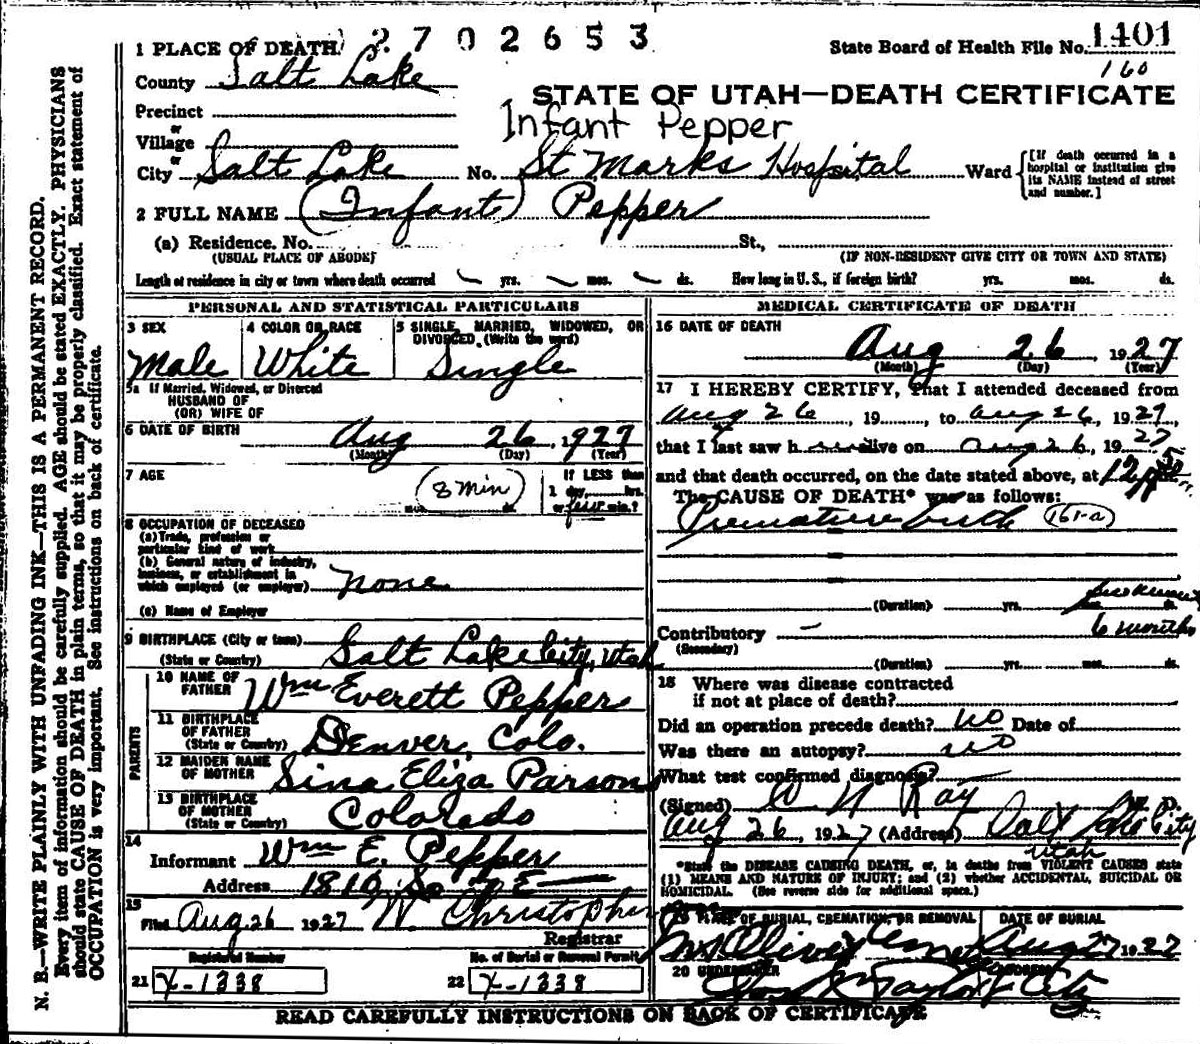 1 PLACE OF DEATH 2702653
State Board of Health File No. 1401
160
County Salt Lake
STATE OF UTAH—DEATH CERTIFICATE
Precinct
or
Infant Pepper
Village
or
City Salt Lake No. St Marks Hospital Ward [If death occurred in a hospital or institution give its NAME instead of street and number.]
2 FULL NAME (Infant) Pepper
(a) Residence. No. St.,
(USUAL PLACE OF ABODE) (IF NON-RESIDENT GIVE CITY OR TOWN AND STATE)
Length of residence in city or town where death occurred yrs. mos. ds. How long in U. S., if foreign birth? yrs. mos. ds.
PERSONAL AND STATISTICAL PARTICULARS
3 SEX 4 COLOR OR RACE 5 SINGLE, MARRIED, WIDOWED, OR DIVORCED. (Write the word)
Male White Single
5a If Married, Widowed, or Divorced
HUSBAND OF
(OR) WIFE OF
6 DATE OF BIRTH Aug 26, 1927
(Month) (Day) (Year)
7 AGE (8 min) If LESS than
1 day, hrs.
mos. ds. or min.?
8 OCCUPATION OF DECEASED
(a) Trade, profession or
particular kind of work
(b) General nature of industry,
business, or establishment in
which employed (or employer) none
(c) Name of Employer
9 BIRTHPLACE (City or town) Salt Lake City, Utah
(State or Country)
PARENTS
10 NAME OF
FATHER Wm Everett Pepper
11 BIRTHPLACE
OF FATHER
(State or Country) Denver, Colo.
12 MAIDEN NAME
OF MOTHER Sina Eliza Parsons
13 BIRTHPLACE
OF MOTHER
(State or Country) Colorado
14
Informant Wm E. Pepper
Address 1810 So
15
Filed Aug 26 1927 W. Christopher
Registrar
Registered Number No. of Burial or Removal Permit
21 X-1338 22 X-1338
MEDICAL CERTIFICATE OF DEATH
16 DATE OF DEATH
Aug 26, 1927
(Month) (Day) (Year)
17 I HEREBY CERTIFY, That I attended deceased from
Aug 26, 19, to Aug 26, 1927,
that I last saw h alive on Aug 26, 1927
and that death occurred, on the date stated above, at
The CAUSE OF DEATH* was as follows:
Premature birth (161-a)
(Duration) yrs. mos. ds.
6 months
Contributory —
(Secondary)
(Duration) yrs. mos. ds.
18 Where was disease contracted
if not at place of death?
Did an operation precede death? no Date of
Was there an autopsy? no
What test confirmed diagnosis?
(Signed) W N Ray M. D.
Aug 26, 1927 (Address) Salt Lake City
Utah
*State the DISEASE CAUSING DEATH, or, in deaths from VIOLENT CAUSES state
(1) MEANS AND NATURE OF INJURY; and (2) whether ACCIDENTAL, SUICIDAL OR
HOMICIDAL. (See reverse side for additional space.)
19 PLACE OF BURIAL, CREMATION, OR REMOVAL DATE OF BURIAL
Mt Olivet Cemetery Aug 27 1927
20 UNDERTAKER ADDRESS
Taylor City
READ CAREFULLY INSTRUCTIONS ON BACK OF CERTIFICATE
N. B.—WRITE PLAINLY WITH UNFADING INK—THIS IS A PERMANENT RECORD.
Every item of information should be carefully supplied. AGE should be stated EXACTLY. PHYSICIANS
should state CAUSE OF DEATH in plain terms, so that it may be properly classified. Exact statement of
OCCUPATION is very important. See instructions on back of certificate.